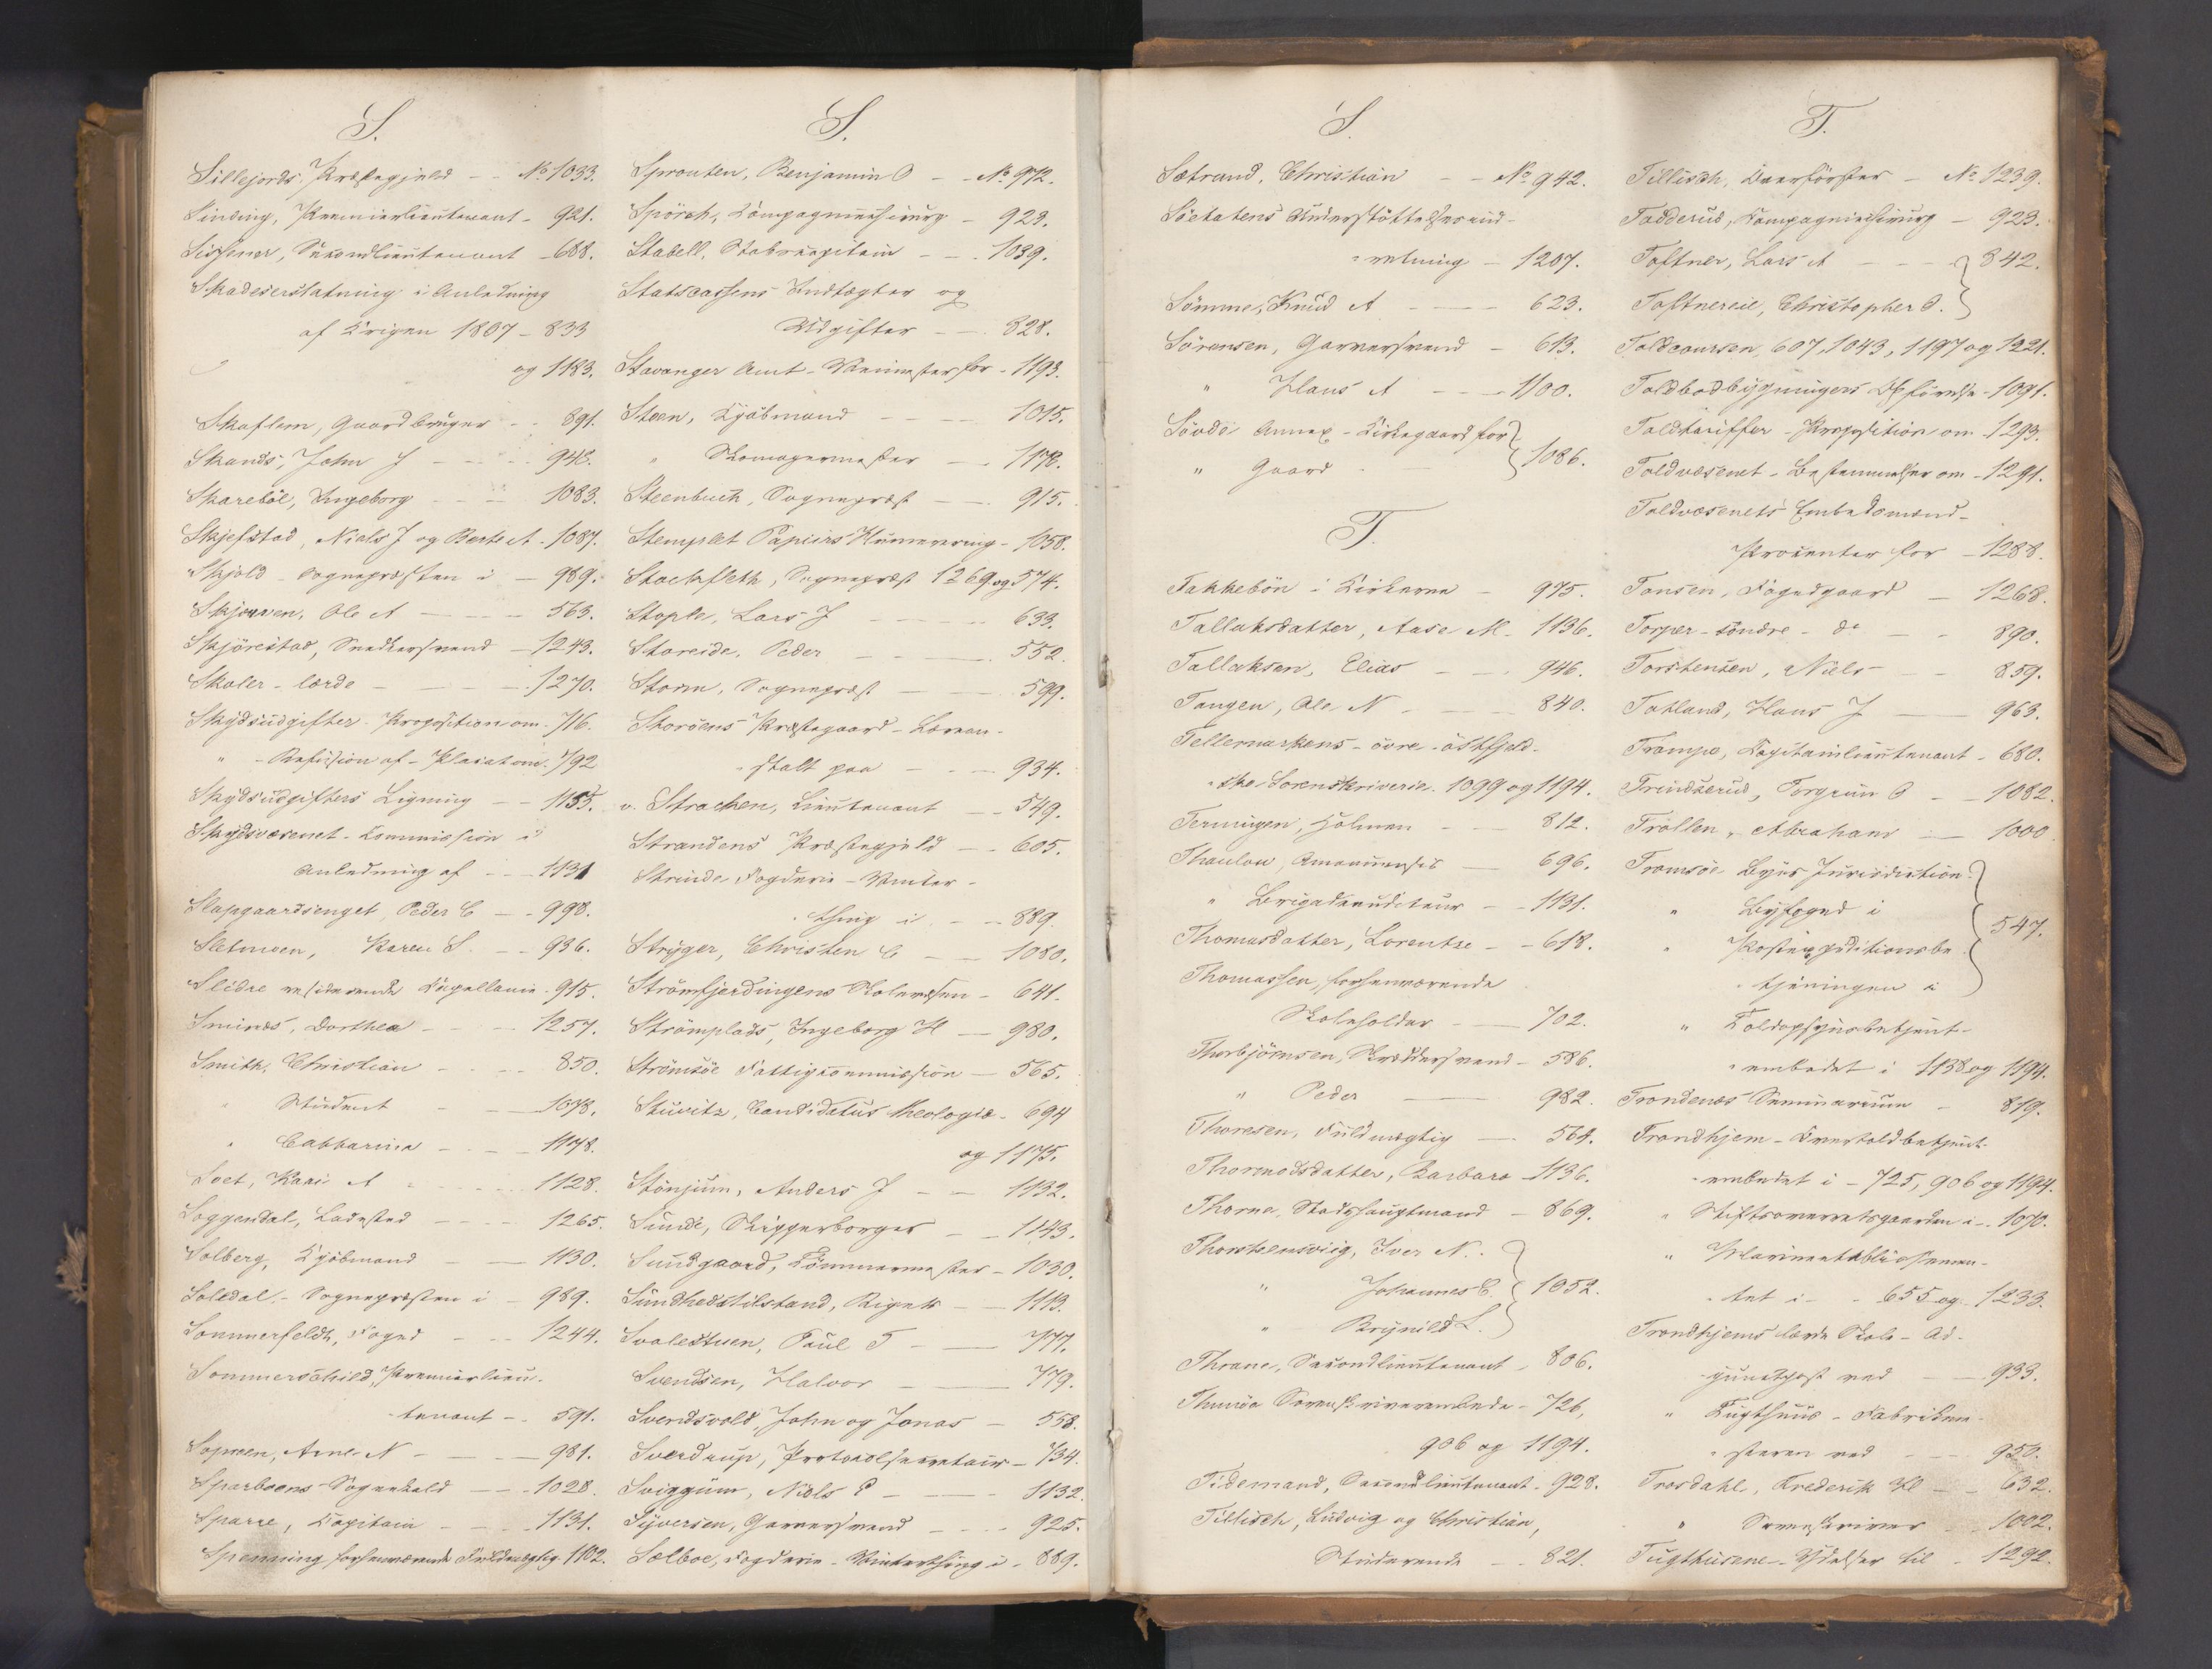 S.
Sillejords Præstegjeld - - No 1033.
Sinding, Premierlieutenant - 921.
Sissener, Secondlieutenant - 688.
Skadeserstatning i Anledning
af Krigen 1807 - 833
og 1183.
Skaflem, Gaardbruger - - 891.
Skands, John J - - - 948.
Skareböl, Ingeborg - - - 1083.
Skjefstad, Niels J og Berte A - 1087.
Skjold - Sognepræsten i - 989.
Skjerven, Ole A - - - 563.
Skjörestad, Snedkersvend - 1243.
Skoler - lærde - - - 1270.
Skydsudgifter - Proposition om - 716.
" - Refusion af - Placat om. 792
Skydsudgifters Ligning - - 1155.
Skydsvæsenet - Commission i
Anledning af - - 1131
Slapgaardsenget, Peder C - - 998.
Sletmoen, Karen S. - - 936.
Slidre residerende Capellanie. 915.
Sminæs, Dorthea - - - 1257.
Smith, Christian - - - 850.
" Student - - - 1078.
" Cathharina - - - 1178.
Soet, Kari A - - - 1128.
Soggendal, Ladested - - - 1265.
Solberg, Kjöbmand - - 1130.
Soledal - Sognepræsten i - 989.
Sommerfeldt, Foged - - - 1244.
Sommerschild, Premierlieu-
tenant - - 591.
Soproen, Arne N - - - 981.
Sparboens Sorenskriveri - - 1028.
Sparre, Capitain - - - 1131.
Spenning forhenværende Fuldmægtig. 1102.
S.
Sprouten, Benjamin O - - No 972.
Spörch, Compagniechirurg - 923.
Stabell, Stabscapitain - - - 1039.
Statscassens Indtægter og
Udgifter - - - 828.
Stavanger Amt - Veimester for - 1193.
Steen, Kjöbmand - - - 1015.
" Skomagermester - - 1178.
Steenbuch, Sognepræst - - 915.
Stemplet Papiirs Numerering - 1058.
Stockfleth, Sognepræst 1269 og 574.
Stople, Lars J - - - 633.
Storeide, Peder - - - 552.
Storm, Sognepræst - - - 599.
Storöens Præstegaard - Lærean-
stalt paa - - - 934.
v. Strachen, Lieutenant - - 549.
Strandens Præstegjeld - - 605.
Strinde Fogderie - Vinter-
thing i - - 889.
Stryger, Christen C - - 1080.
Strömfjerdingens Skolevæsen - 641.
Strömplads, Ingeborg H - 980.
Strömsöe Fattigcommission - 565.
Stuwitz, Candidatus theologiæ - 694
og 1175.
Stönjum, Anders J - - 1132.
Sunde, Skipperborger - - 1143.
Sundgaard, Tömmermester - 1030.
Sundhedstilstand, Rigets - - 1113.
Svalestuen, Poul T - - 777.
Svendsen, Halvor - - 779.
Svendsvold, John og Jonas - 558.
Sverdrup, Protocolsecretair - 734.
Sviggum, Niels P - - - 1132.
Syversen, Garversvend - - - 925.
Sælboe, Fogderie - Vinterthing i - 889.
S.
Sætrand, Christian - - No 942.
Söetatens Understöttelsesind-
retning - 1207.
Sömme, Knud A - - 623.
Sörensen, Garversvend - 613.
" Hans A - - - 1100.
Sövde Annex - Kirkegaard for
" Gaard - - 1086.
T.
Takkebön i Kirkerne - 975.
Tallaksdatter, Aase M. - 1136.
Tallaksen, Elias - - - 946.
Tangen, Ole N - - - 840.
Tellemarkens - övre - östfjeld-
ske Sorenskriverie. 1099 og 1194.
Terningen, Holmen - - 812.
Thaulow, Amanuensis - 696.
" Brigadeauditeur - - 1131.
Thomasdatter, Lorentze - - 618.
Thomassen, forhenværende
Skoleholder - - 702.
Thorbjörnsen, Skræddersvend - 586.
" Peder - - 982.
Thoresen, Fuldmægtig - 564.
Thormodsdatter, Barbara - 1136.
Thorne, Stadshauptmand - 869.
Thorsteensviig, Iver N.
" Johannes C. 1052.
" Brynild L.
Thrane, Secondlieutenant - 806.
Thunöe Sorenskriverembede - 726,
906 og 1194.
Tidemand, Secondlieutenant. 928.
Tillisch, Ludvig og Christian,
Studerende - - 821.
T.
Tillisch, Overförster - No 1239.
Todderud, Compagniechirurg - 923.
Toftner, Lars A - - - 842.
Toftnereie, Christopher O.
Toldcoursen, 607, 1043, 1197 og 1221.
Toldbodbygningers Opförelse - 1091.
Toldtariffer - Proposition om - 1293.
Toldvæsenet - Bestemmelser om - 1291.
Toldvæsenets Embedsmænd-
Procenter for - 1288.
Tonsen, Fogedgaard - 1268.
Torper - söndre - do - - 890.
Torstensen, Niels - - 859.
Totland, Hans J - - 963.
Trampe, Capitainlieutenant - 680.
Trindterud, Torgrim O - - 1082.
Trollen, Abraham - - 1000
Tromsöe Byes Jurisdiction
" Byfoged i
" Postexpeditionsbe- 547.
tjeningen i
" Toldopsynsbetjent-
embedet i 1138 og 1194.
Trondenæs Seminarium - 819.
Trondhjem - Overtoldbetjent-
embedet i - 725, 906 og 1194.
" Stiftsoverretsgaarden i - 1070.
" Marineetablissemen-
tet i - - 655 og 1233.
Trondhjems lærde Skole - Ad-
junctpost ved - - 933.
" Tugthuus - Fabrikme-
steren ved - - 950.
Trosdahl, Frederik Kl - - 632.
" Sorenskriver - 1002.
Tugthusene - Ydelser til - 1292.